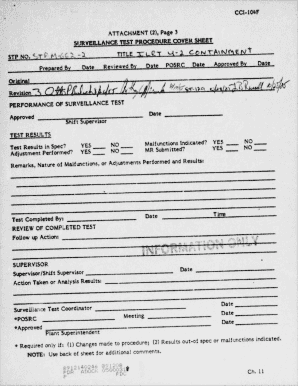 CCI-104F
ATTACHMENT (2), Page 3
SURVEILLANCE TEST PROCEDURE COVER SHEET
STP NO. STP M-662-2 TITLE ILRT U-2 CONTAINMENT
Prepared By Date Reviewed By Date POSRC Date Approved By Date
Original
Revision 3
PERFORMANCE OF SURVEILLANCE TEST
Approved Date
Shift Supervisor
TEST RESULTS
Test Results in Spec? YES NO Malfunctions Indicated? YES NO
Adjustment Performed? YES NO MR Submitted? YES NO
Remarks, Nature of Malfunctions, or Adjustments Performed and Results:
Test Completed By: Date Time
REVIEW OF COMPLETED TEST
Follow up Action:
INFORMATION ONLY
SUPERVISOR
Supervisor/Shift Supervisor Date
Action Taken or Analysis Results:
Surveillance Test Coordinator Date
*POSRC Meeting Date
*Approved Date
Plant Superintendent
* Required only if: (1) Changes made to procedure; (2) Results out-of spec or malfunctions indicated.
NOTE: Use back of sheet for additional comments.
PDR ADOCK
PDR
Ch. 11